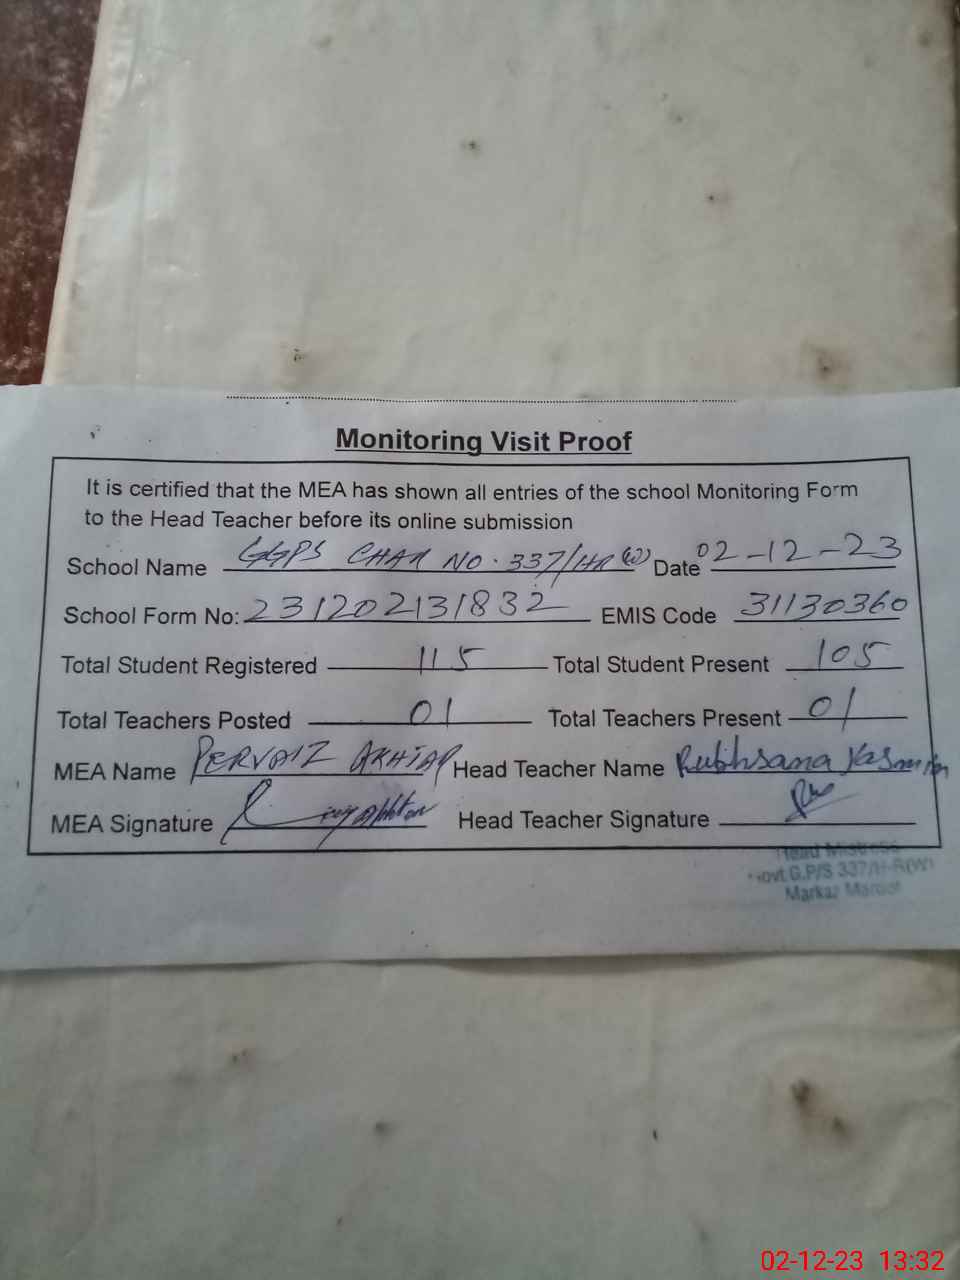 Monitoring Visit Proof
It is certified that the MEA has shown all entries of the school Monitoring Form
to the Head Teacher before its online submission
School Name GGPS CHAK NO. 337/HR(W) Date 02-12-23
School Form No: 231202131832 EMIS Code 31130360
Total Student Registered 115 Total Student Present 105
Total Teachers Posted 01 Total Teachers Present 01
MEA Name PERVAIZ AKHTAR Head Teacher Name Rubhsana Yasmin
MEA Signature Head Teacher Signature
Head Mistress
Govt G.P/S 337/H-R(W)
Markaz Marot
02-12-23 13:32